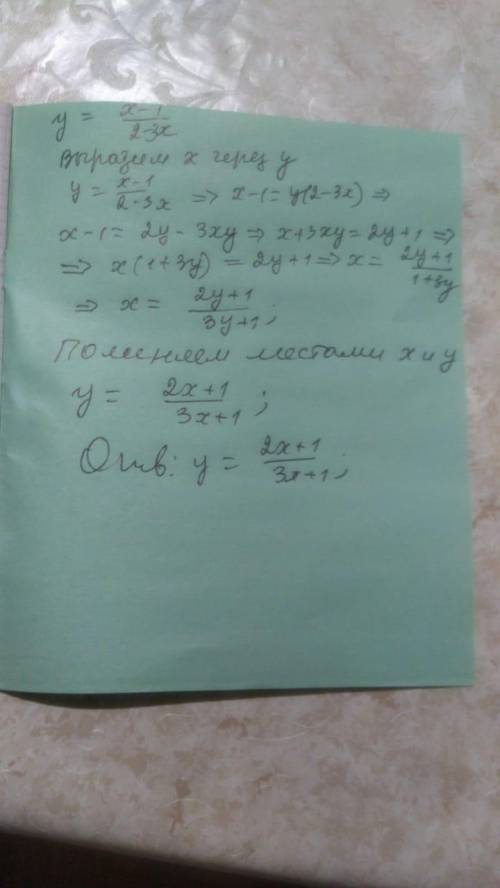 y = \frac{x-1}{2-3x}
Выразим x через y
y = \frac{x-1}{2-3x} => x-1 = y(2-3x) =>
x-1 = 2y - 3xy => x+3xy = 2y+1 =>
=> x(1+3y) = 2y+1 => x = \frac{2y+1}{1+3y}
=> x = \frac{2y+1}{3y+1};
Поменяем местами x и y
y = \frac{2x+1}{3x+1};
Отв: y = \frac{2x+1}{3x+1};